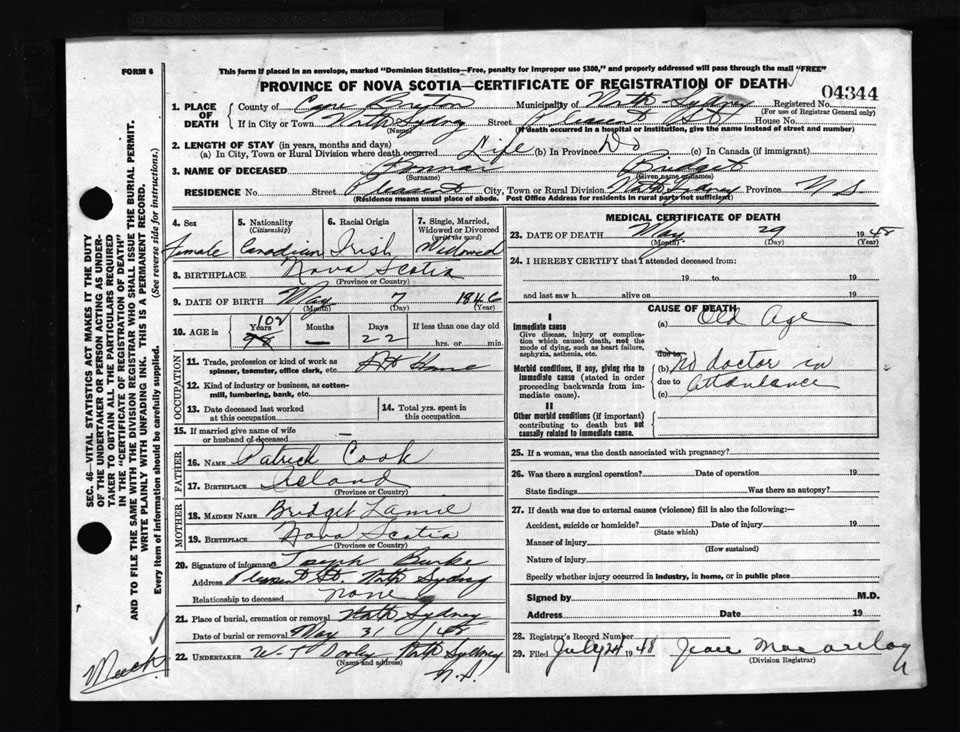 FORM 6
This form if placed in an envelope, marked "Dominion Statistics—Free, penalty for improper use $300," and properly addressed will pass through the mail "FREE"
PROVINCE OF NOVA SCOTIA—CERTIFICATE OF REGISTRATION OF DEATH
04344
1. PLACE OF DEATH
County of Cape Breton Municipality of North Sydney Registered No.
(For use of Registrar General only)
If in City or Town North Sydney Street Pleasant St House No.
(Name) (If death occurred in a hospital or institution, give the name instead of street and number)
2. LENGTH OF STAY (in years, months and days)
(a) In City, Town or Rural Division where death occurred Life (b) In Province Do (c) In Canada (if immigrant)
3. NAME OF DECEASED Bridget
(Surname) (Given name or names)
RESIDENCE No. Street Pleasant City, Town or Rural Division North Sydney Province N S
(Residence means usual place of abode. Post Office Address for residents in rural parts not sufficient)
4. Sex
Female
5. Nationality (Citizenship)
Canadian
6. Racial Origin
Irish
7. Single, Married, Widowed or Divorced (write the word)
Widowed
8. BIRTHPLACE Nova Scotia
(Province or Country)
9. DATE OF BIRTH May 7 1846
(Month) (Day) (Year)
10. AGE in Years Months Days If less than one day old
102
98 — 22 hrs. or min.
OCCUPATION
11. Trade, profession or kind of work as spinner, teamster, office clerk, etc. At Home
12. Kind of industry or business, as cotton-mill, lumbering, bank, etc.
13. Date deceased last worked at this occupation
14. Total yrs. spent in this occupation
15. If married give name of wife or husband of deceased —
FATHER
16. NAME Patrick Cook
17. BIRTHPLACE Ireland
(Province or Country)
MOTHER
18. MAIDEN NAME Bridget
19. BIRTHPLACE Nova Scotia
(Province or Country)
20. Signature of informant Joseph Burke
Address Pleasant St. North Sydney
Relationship to deceased none
21. Place of burial, cremation or removal North Sydney
Date of burial or removal May 31 /48
22. UNDERTAKER W. T Dooley North Sydney
(Name and address)
N.S.
MEDICAL CERTIFICATE OF DEATH
23. DATE OF DEATH May 29 1948
(Month) (Day) (Year)
24. I HEREBY CERTIFY that I attended deceased from:
19 to 19
and last saw h alive on 19
CAUSE OF DEATH
I
Immediate cause
Give disease, injury or complication which caused death, not the mode of dying, such as heart failure, asphyxia, asthenia, etc.
(a) Old Age
due to
Morbid conditions, if any, giving rise to immediate cause (stated in order proceeding backwards from immediate cause).
(b) No doctor in
due to attendance
(c)
II
Other morbid conditions (if important) contributing to death but not causally related to immediate cause.
25. If a woman, was the death associated with pregnancy?
26. Was there a surgical operation? Date of operation 19
State findings Was there an autopsy?
27. If death was due to external causes (violence) fill in also the following:—
Accident, suicide or homicide? Date of injury 19
(State which)
Manner of injury
(How sustained)
Nature of injury
Specify whether injury occurred in industry, in home, or in public place
Signed by M.D.
Address Date 19
28. Registrar's Record Number
29. Filed July 24 1948 Jean
(Division Registrar)
SEC. 46—VITAL STATISTICS ACT MAKES IT THE DUTY
OF THE UNDERTAKER OR PERSON ACTING AS UNDER-
TAKER TO OBTAIN ALL THE PARTICULARS REQUIRED
IN THE "CERTIFICATE OF REGISTRATION OF DEATH"
AND TO FILE THE SAME WITH THE DIVISION REGISTRAR WHO SHALL ISSUE THE BURIAL PERMIT.
WRITE PLAINLY WITH UNFADING INK. THIS IS A PERMANENT RECORD.
Every item of information should be carefully supplied. (See reverse side for instructions.)